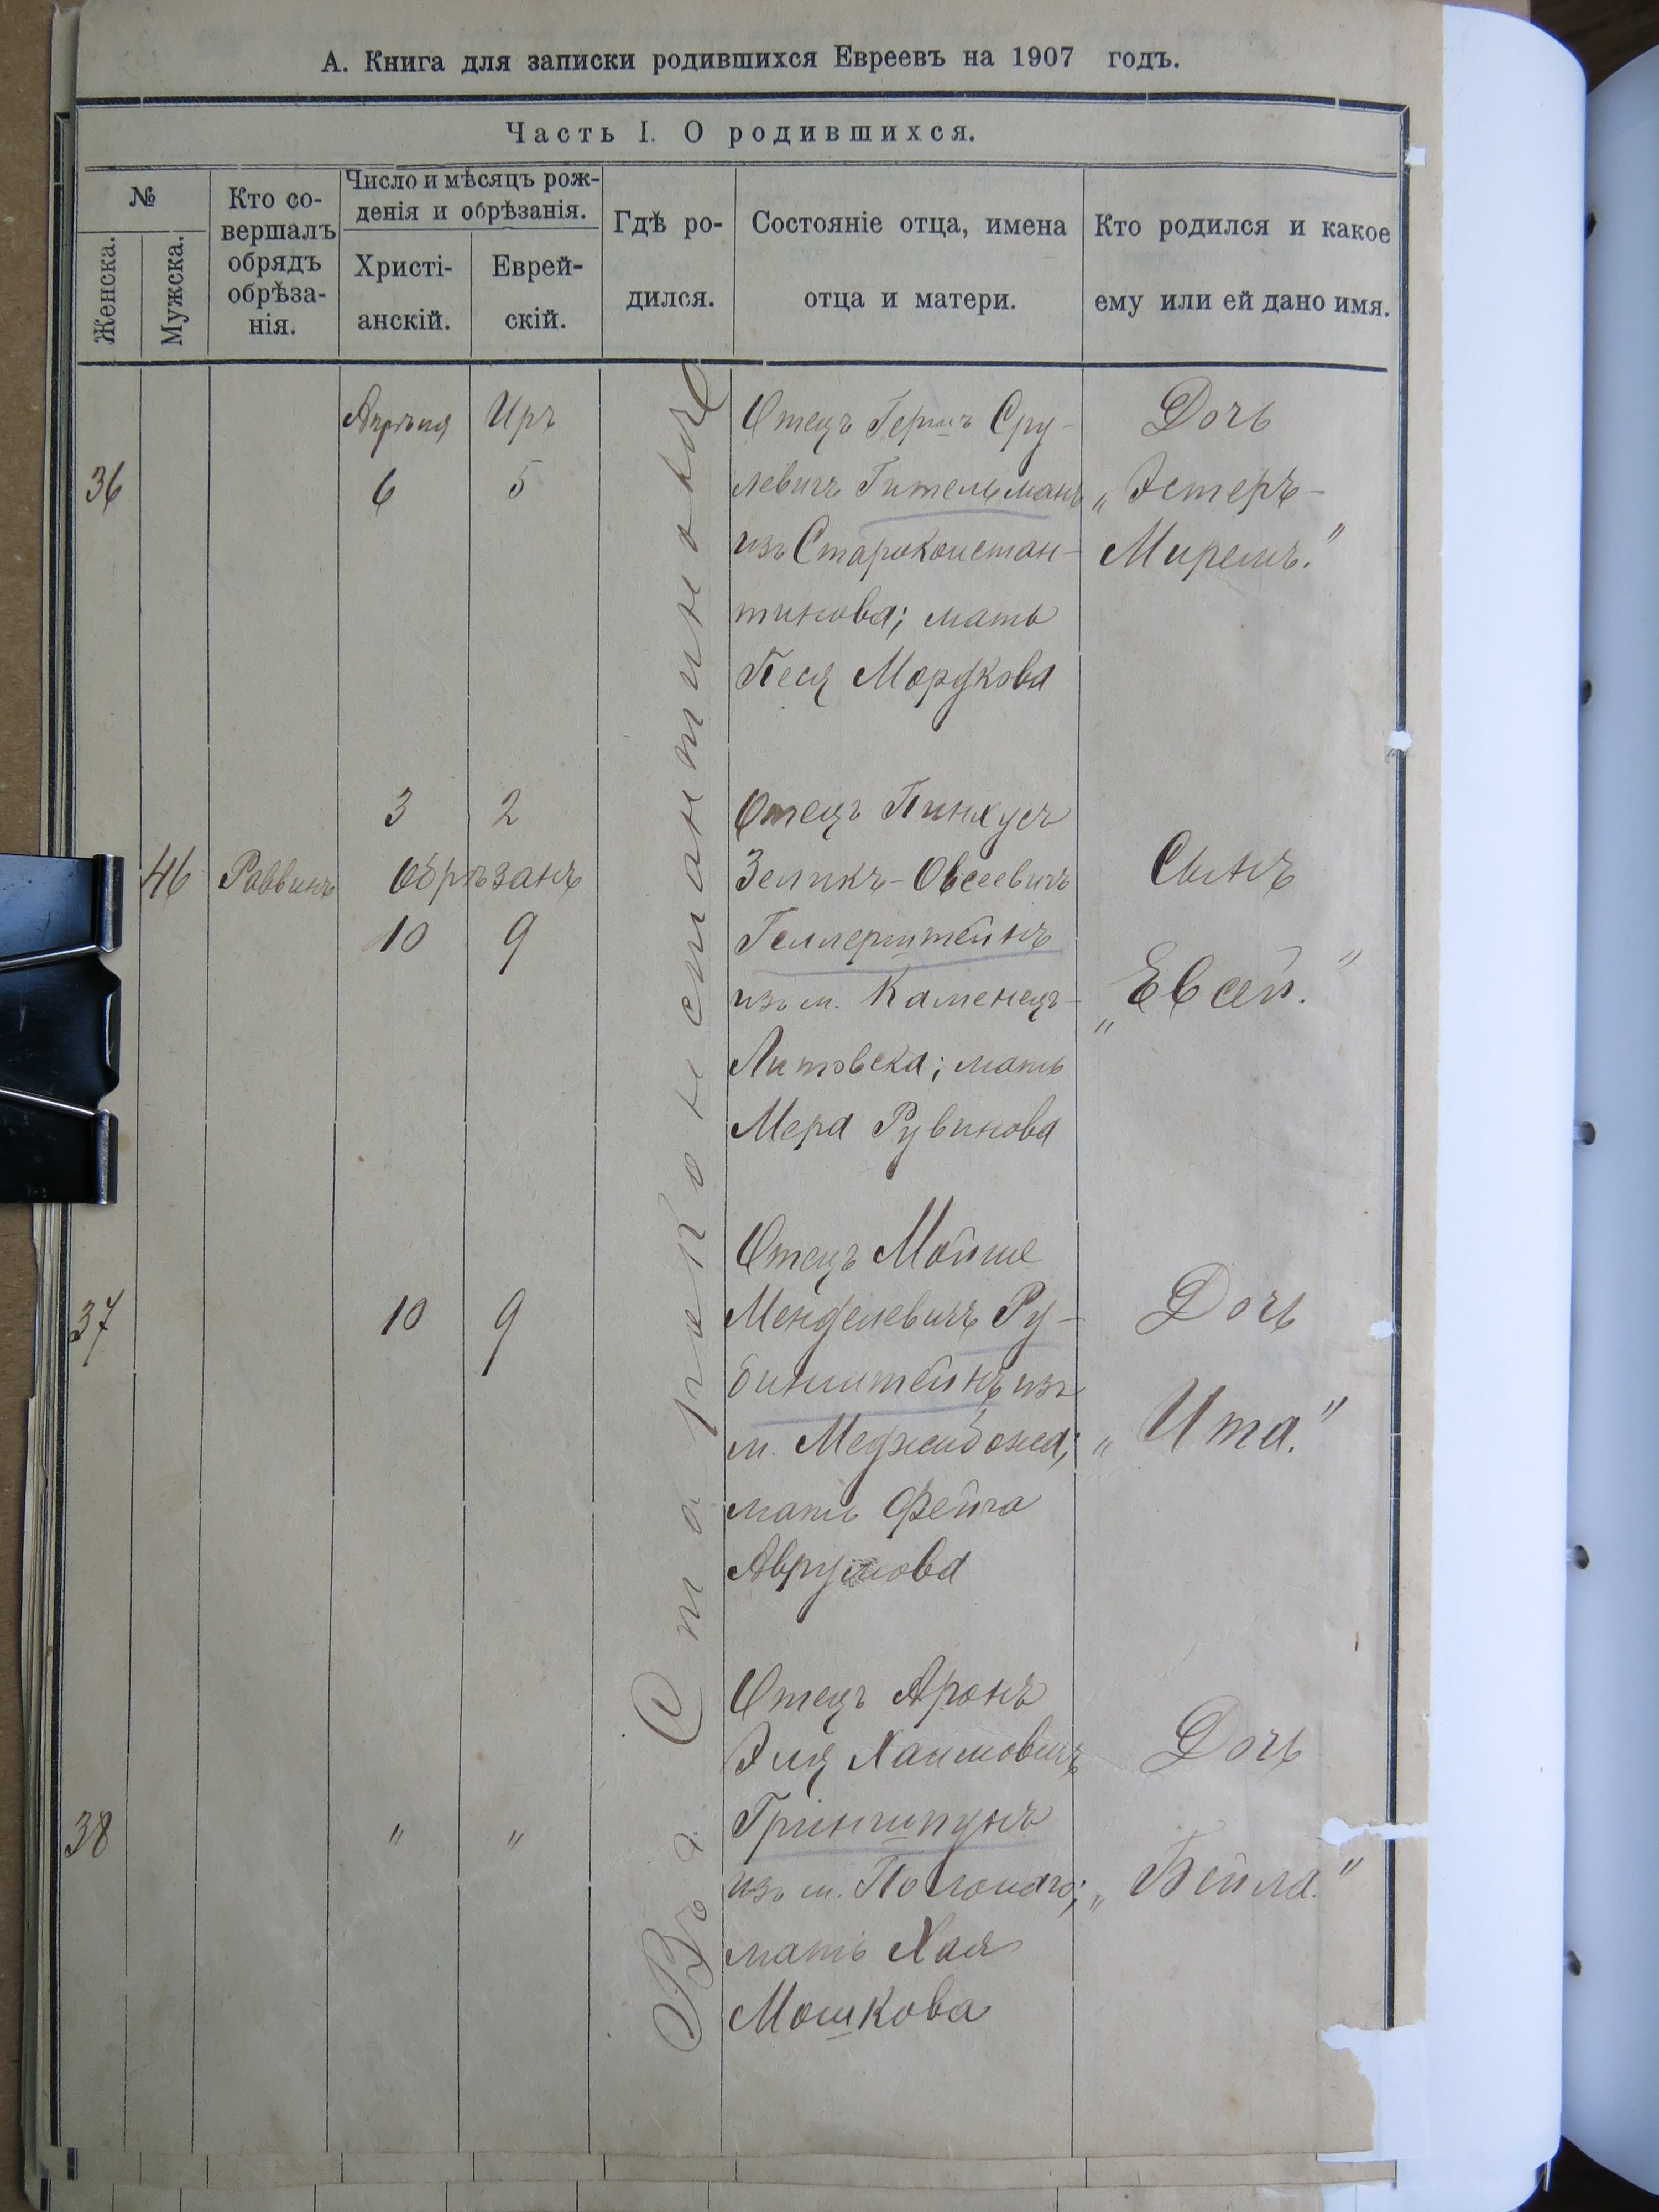 А. Книга для записки родившихся Евреевъ на 1907 годъ.
Часть I. О родившихся.
№
Женска.
Мужска.
Кто со-
вершалъ
обрядъ
обрѣза-
нія.
Число и мѣсяцъ рож-
денія и обрѣзанія.
Христі-
анскій.
Еврей-
скій.
Гдѣ ро-
дился.
Состояніе отца, имена
отца и матери.
Кто родился и какое
ему или ей дано имя.
Въ г. Староконстантиновѣ
36
Апрѣля Иръ
6 5
Отецъ Гершъ Сру-
левичъ Гительманъ
изъ Староконстан-
тинова; мать
Песя Мордкова
Дочь
„Эстеръ-
Миремъ."
46 Раввинъ
3 2
Обрѣзанъ
10 9
Отецъ Пинхусъ
Зеликъ-Овсеевичъ
Геллерштейнъ
изъ м. Каменецъ-
Литовска; мать
Мера Рувинова
Сынъ
„Евсей."
37
10 9
Отецъ Мойше
Менделевичъ Ру-
бинштейнъ изъ
м. Меджибожа;
мать Фейга
Аврумова
Дочь
„Ита."
38
" "
Отецъ Аронъ
Эля Хаимовичъ
Гріншпунъ
изъ м. Полонаго;
мать Хая
Мошкова
Дочь
„Бейла."